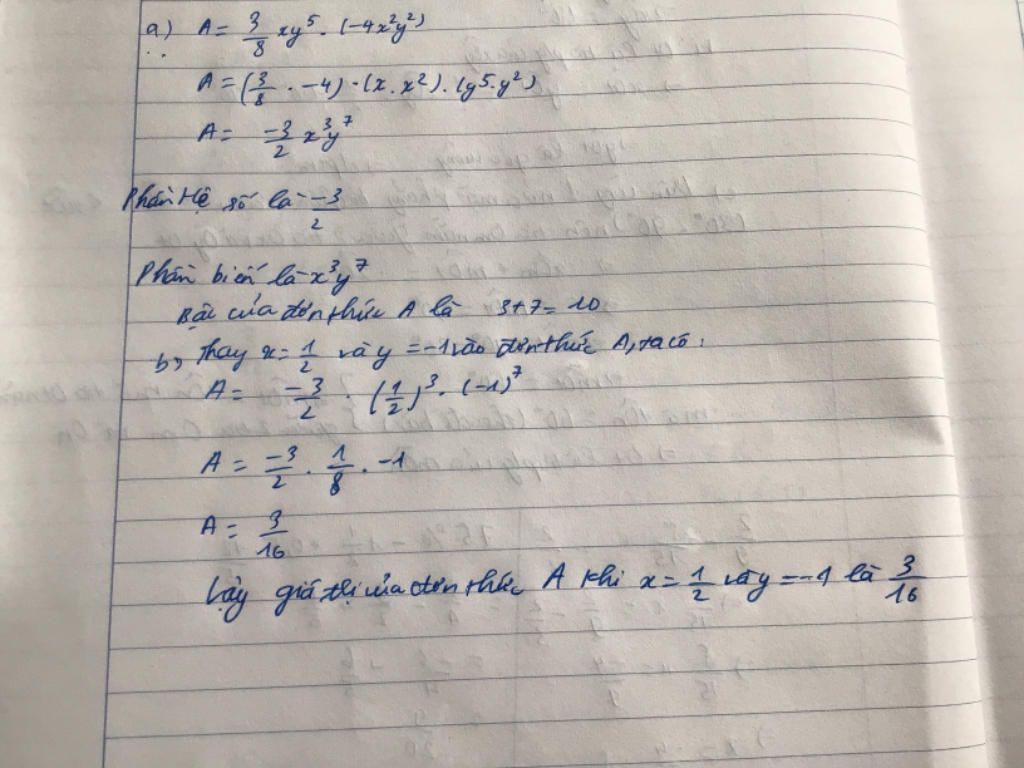 a) A = 3/8 xy⁵ . (-4x²y²)
A = (3/8 . -4) . (x . x²) . (y⁵.y²)
A = -3/2 x³y⁷
Phần Hệ số là -3/2
Phần biến là x³y⁷
Bậc của đơn thức A là 3+7=10
b, Thay x = 1/2 và y = -1 vào đơn thức A, ta có:
A = -3/2 . (1/2)³ . (-1)⁷
A = -3/2 . 1/8 . -1
A = 3/16
Vậy giá trị của đơn thức A khi x = 1/2 và y = -1 là 3/16